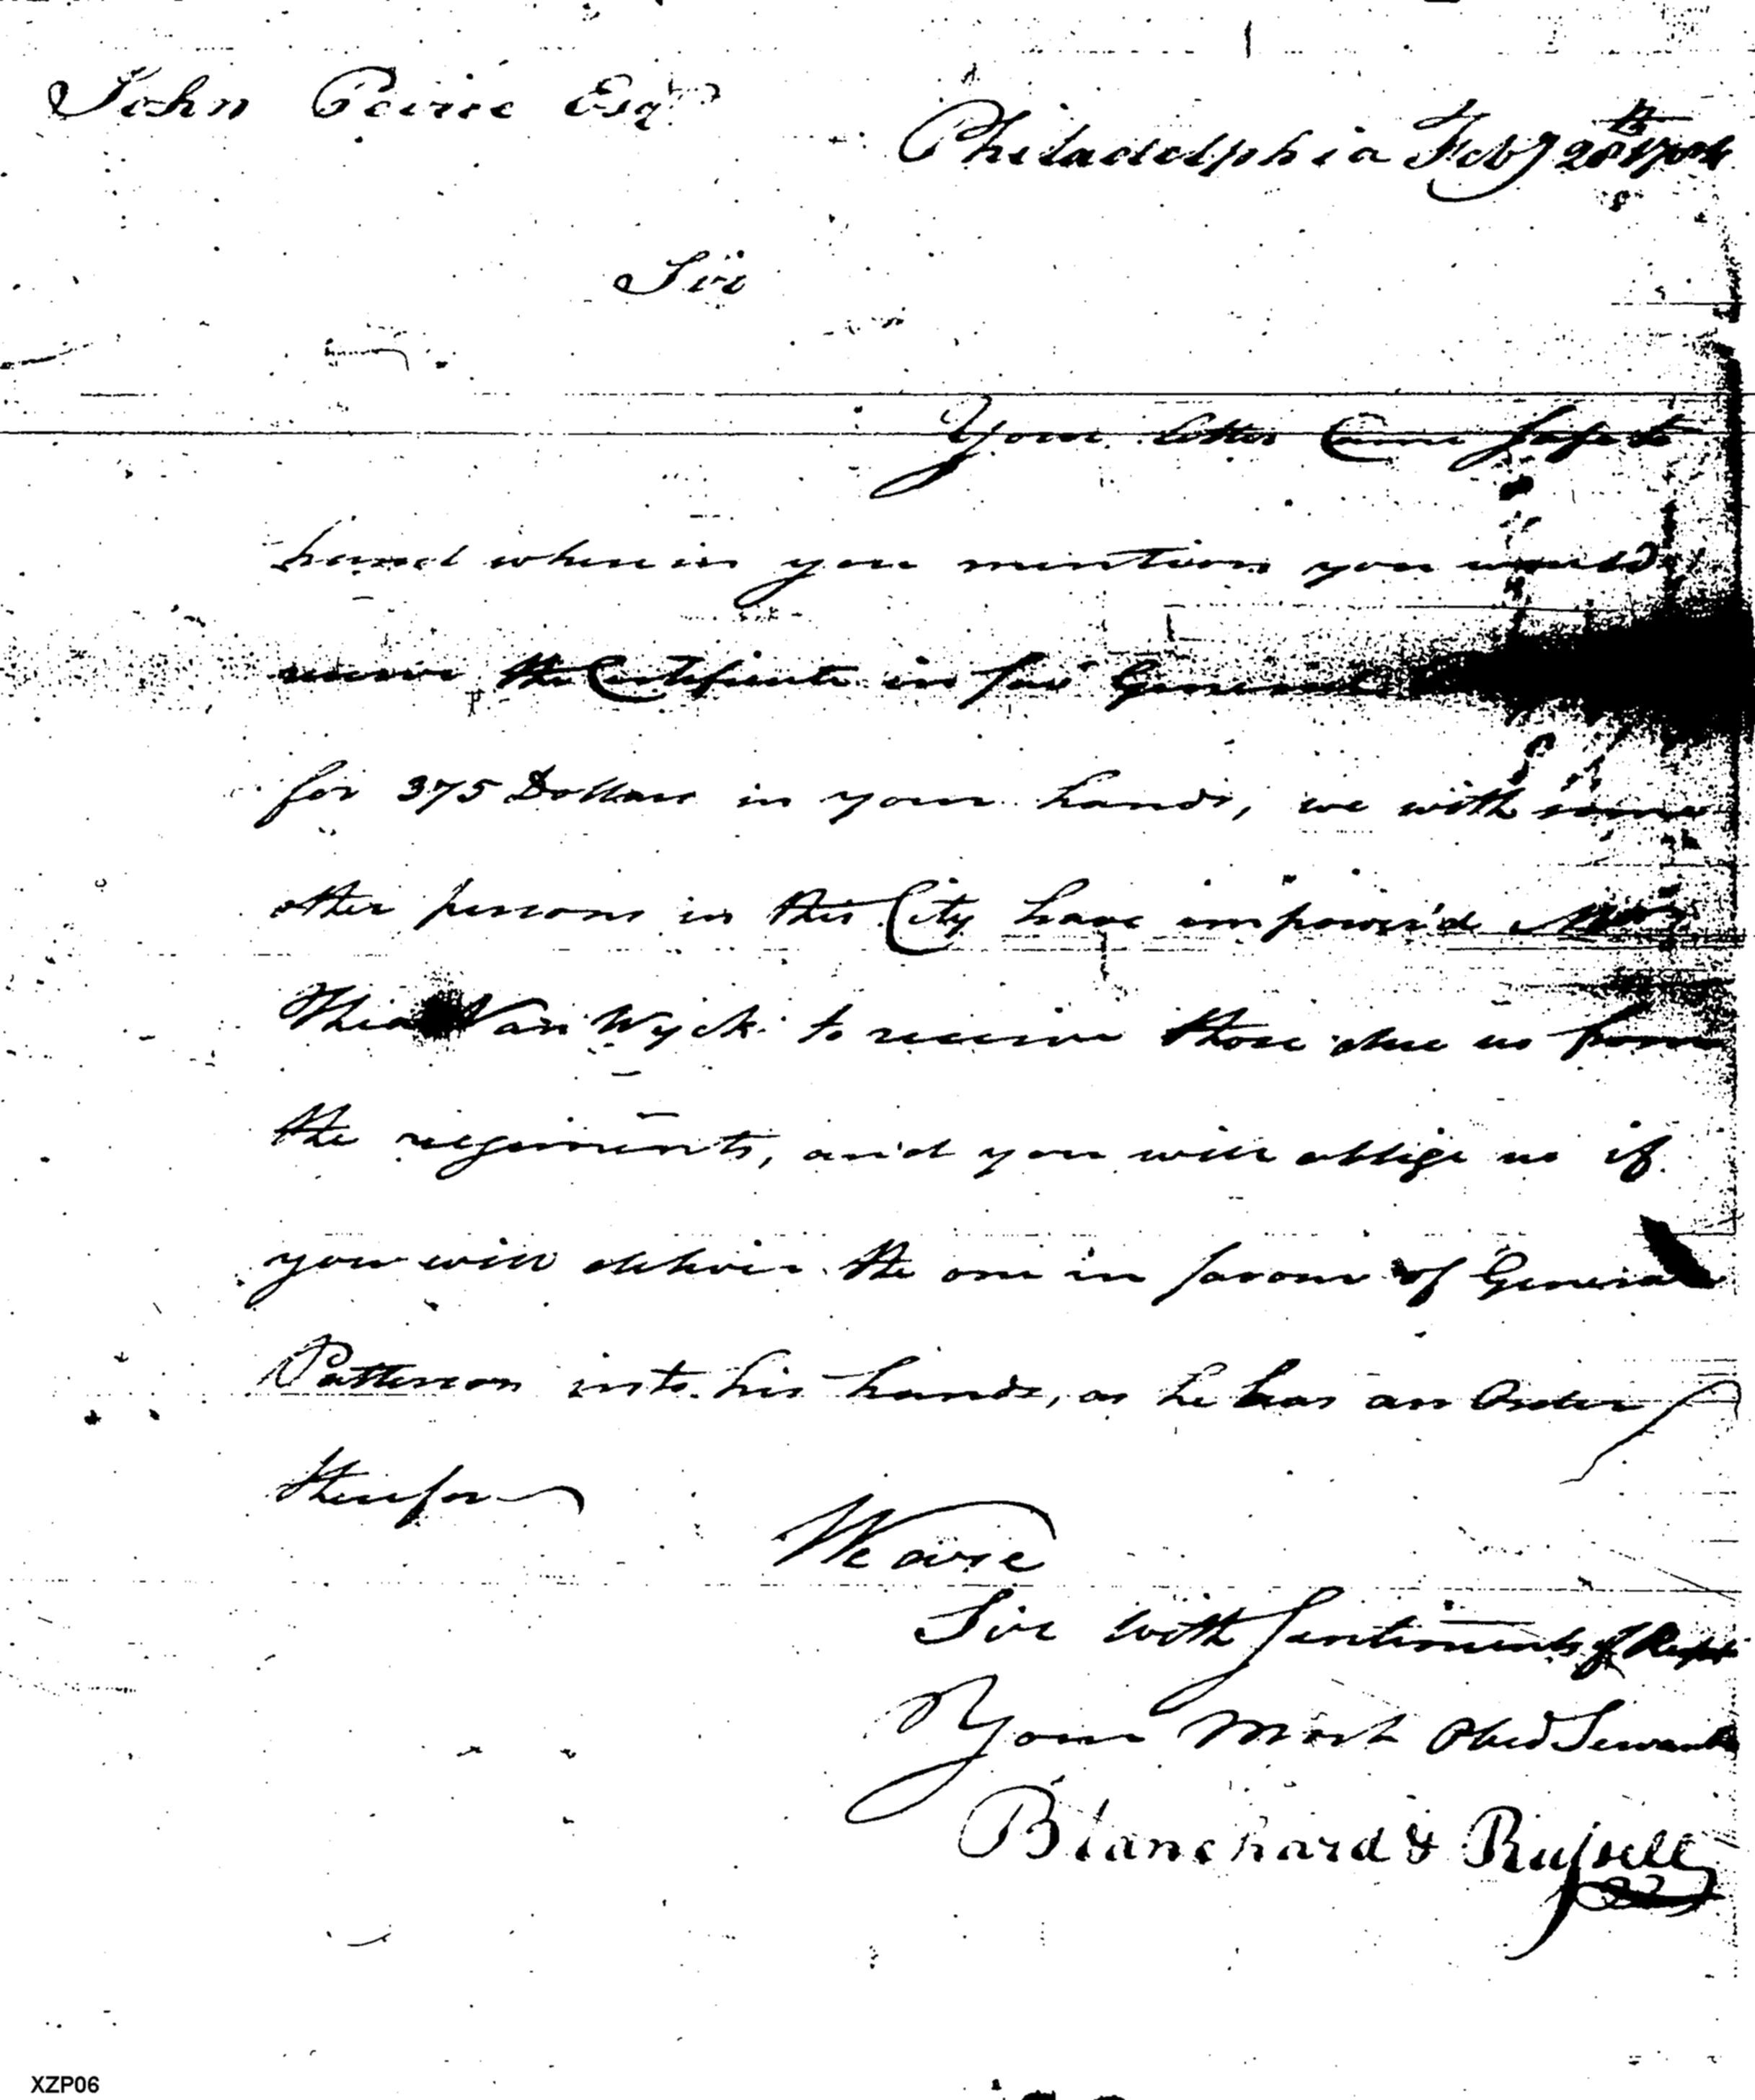 John Peirce Esqr
Philadelphia Feby 28th 1784
Sir
Your letter Came safe to
hand wherein you mention you would
receive the Certificate in favr General
for 375 Dollars in your hands, we with some
other persons in this City have impower'd
Van Wyck to receive those due us from
the regiments, and you will oblige us if
you will deliver the one in favour of General
Patterson into his hands, as he has an Order
therefor
We are
Sir with Sentiments of Respt
Your most Obed Servants
Blanchard & Russell
XZP06